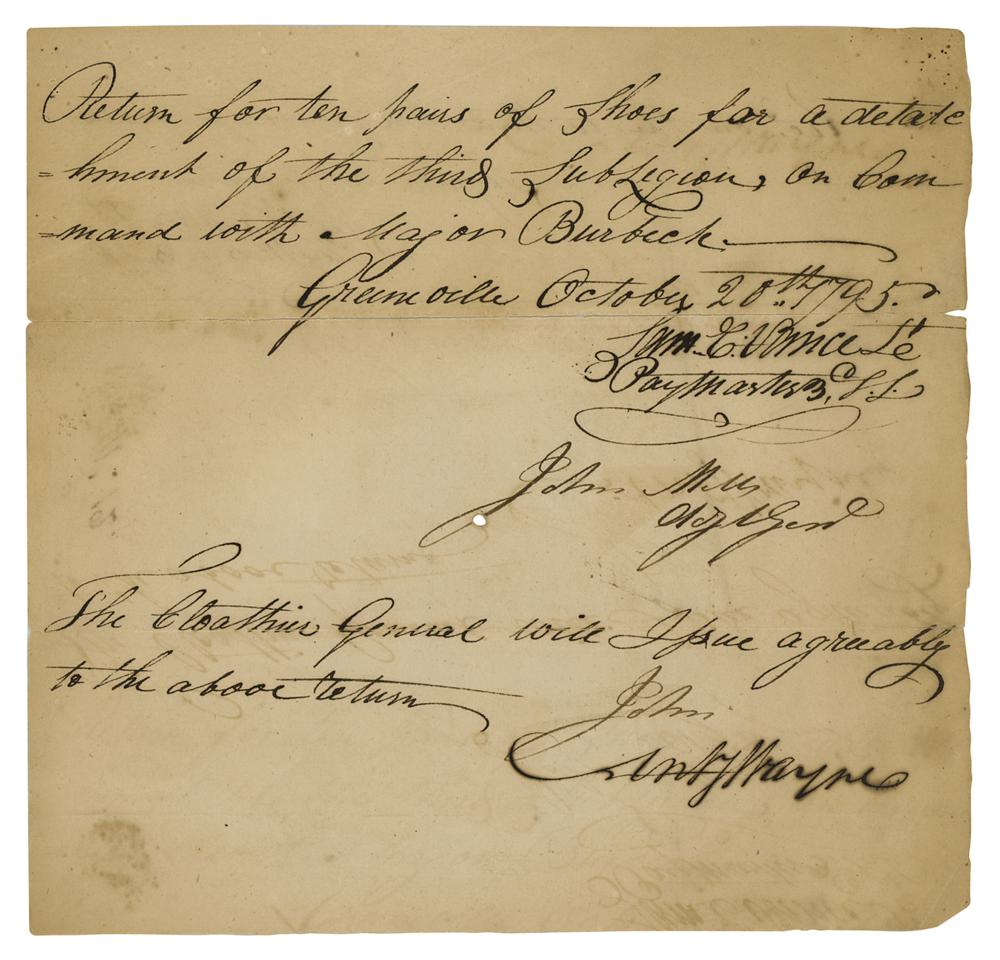 Return for ten pairs of Shoes for a detatc
=hment of the third SubLegion, on Com
=mand with Major Burbeck.
Greeneville October 20th 1795.
Sam. C. Vance Lt
PayMaster 3d S. L.
John Mills
Adjt Genl
The Cloathier General will Issue agreeably
to the above return
John
Anty Wayne